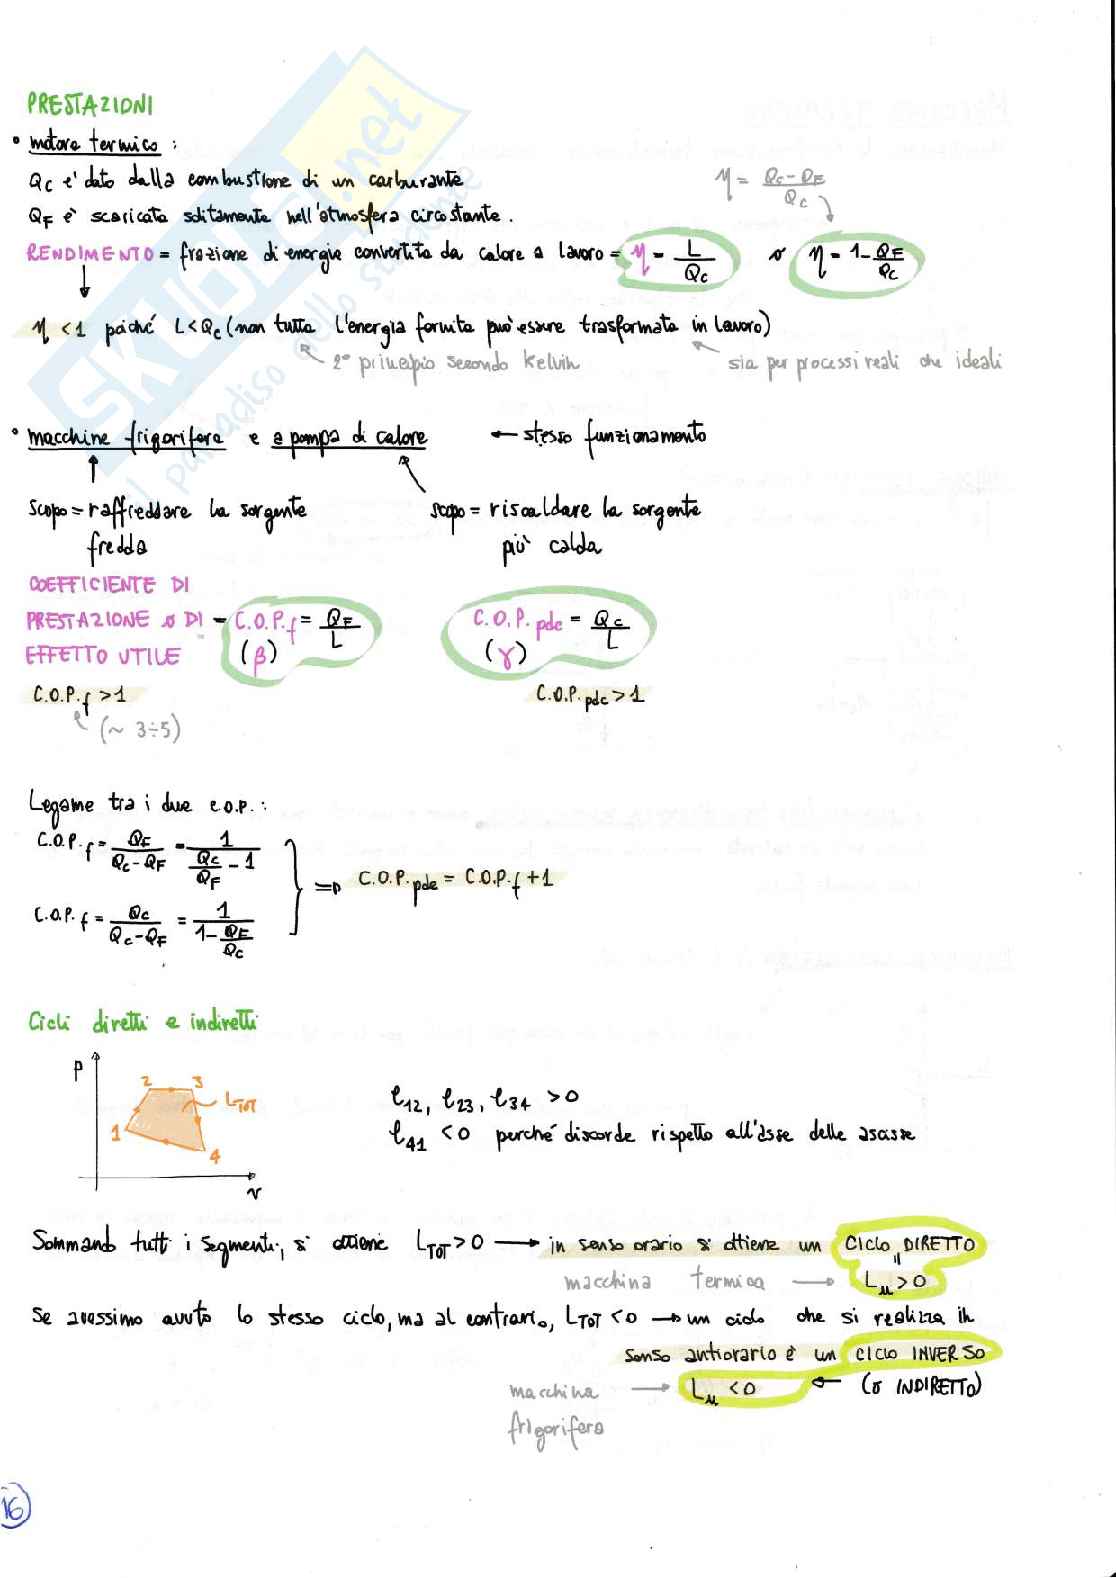 PRESTAZIONI
• motore termico :
Qc e' dato dalla combustione di un carburante
η = Qc-QF / Qc
QF è scaricata solitamente nell'atmosfera circostante.
RENDIMENTO = frazione di energia convertita da calore a lavoro = η = L / Qc o η = 1-QF / Qc
η <1 poiché L<Qc (non tutta l'energia fornita può essere trasformata in lavoro)
2° principio secondo Kelvin
sia per processi reali che ideali
• macchine frigorifere e a pompa di calore ← stesso funzionamento
scopo = raffreddare la sorgente fredda
scopo = riscaldare la sorgente più calda
COEFFICIENTE DI
PRESTAZIONE o DI = C.O.P.f = QF / L
C.O.P.pdc = Qc / L
EFFETTO UTILE (β)
(γ)
C.O.P.f >1
C.O.P.pdc >1
(~ 3÷5)
Legame tra i due C.O.P.:
C.O.P.f = QF / Qc-QF = 1 / Qc/QF - 1
⇒ C.O.P.pdc = C.O.P.f +1
C.O.P.f = Qc / Qc-QF = 1 / 1-QF/Qc
Cicli diretti e indiretti
P
2 3
LTOT
1
4
v
l12, l23, l34 >0
l41 <0 perché discorde rispetto all'asse delle ascisse
Sommando tutti i segmenti, si ottiene LTOT>0 → in senso orario si ottiene un CICLO DIRETTO
macchina termica → Lu>0
Se avessimo avuto lo stesso ciclo, ma al contrario, LTOT <0 → un ciclo che si realizza in
senso antiorario è un CICLO INVERSO
macchina → Lu <0 ← (o INDIRETTO)
frigorifera
16
SKUOLA.net
il paradiso dello studente